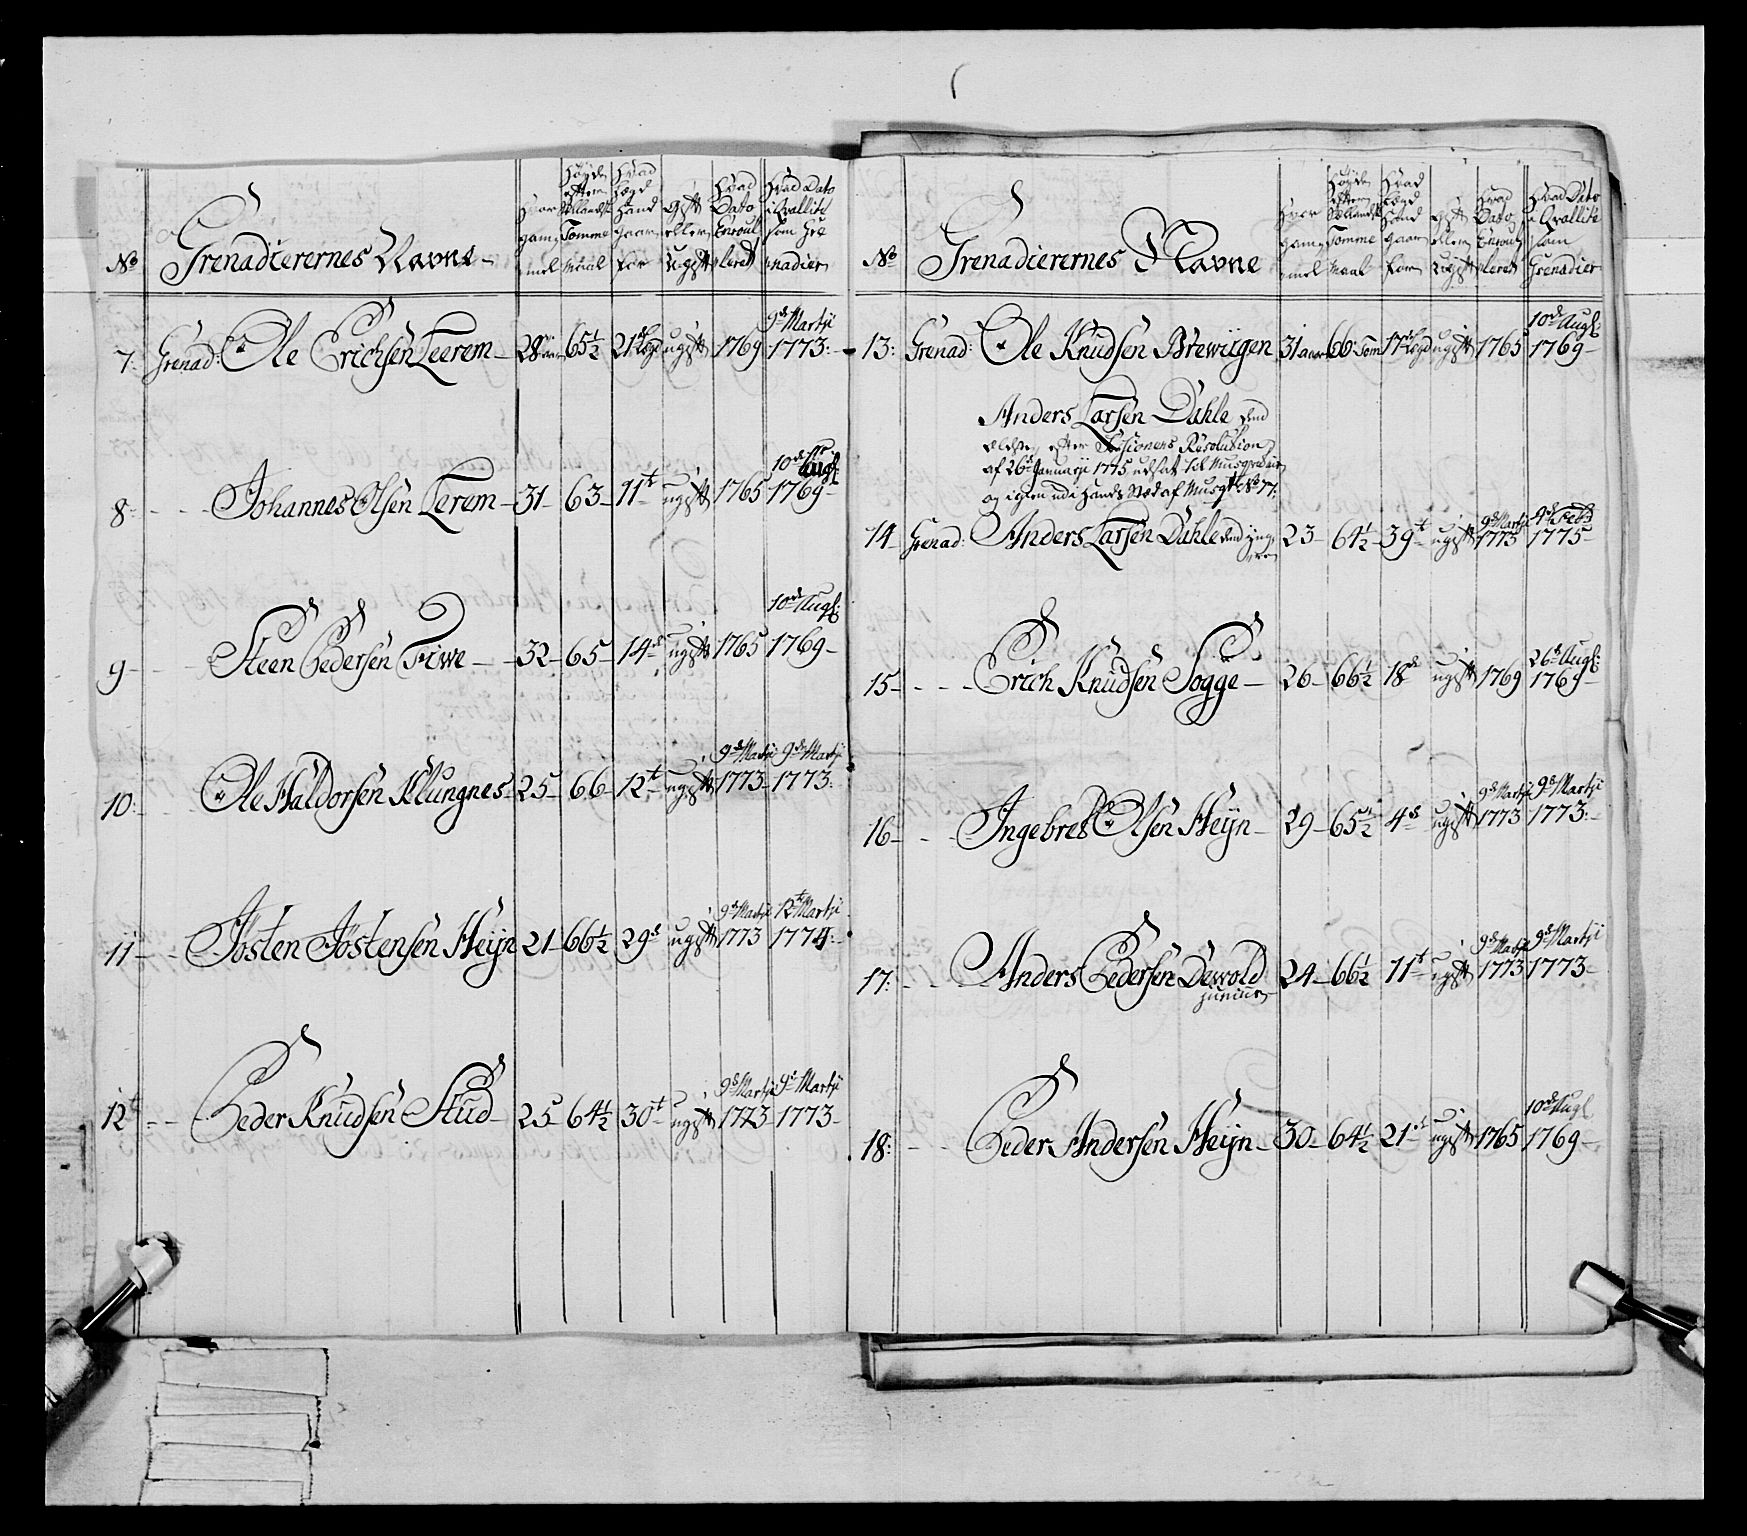 No
Grenadierernes Navne
Hvor gam mel
Høyde efter Siellandsk Tomme Maal
Hvad Lægd Hand gaar for
Gift eller ugift
Hvad Dato Enroul leret
Hvad Dato i Qvallité som Gre nadier
7: Grenad: Ole Erichsen Leerem 28 aar 65½ 21de Lægd ugift 1769 9de Martji 1773:
8: Johannes Olsen Lerem 31 63 11t ugift 1765 10de Augl: 1769
9 Steen Pedersen Fiwe 32 65 14de ugift 1765 10de Augl: 1769
10: Ole Haldorsen Klungnes 25 66 12t ugift 9de Martji 1773 9de Martji 1773:
11 Jøsten Jøstensen Heijn 21 66½ 29de ugift 9de Martji 1773 12t Martji 1774:
12t Peder Knudsen Stud 25 64½ 30t ugift 9de Martji 1773 9de Martji 1773
No
Grenadierernes Navne
Hvor gam mel
Høyde efter Siellandsk Tomme Maal
Hvad Lægd Hand gaar for
Gift eller Ugift
Hvad Dato Enroul leret
Hvad Dato i Qvallité som Grenadier
13: Grenad: Ole Knudsen Brewiigen 31 aar 66 Tom 17de Lægd ugift 1765 10de Augl: 1769
Anders Larsen Dahle dend
eldste, efter Sessionens Resolution
af 26de Januarji 1775 udsat til Musqvetair
og igien udi Hands Sted af Musqt No 77:
14 Grenad: Anders Larsen Dahle dend yng-
ere 23 64½ 39t ugift 9de Martji 1773 4de Feb 1775
15 Erich Knudsen Sogge 26 66½ 18de ugift 1769 26de Augl: 1769
16 Ingebret Olsen Heijn 29 65½ 4de ugift 9de Martji 1773 9de Martji 1773:
17: Anders Pedersen Dewold
junior 24 66½ 11t ugift 9de Martji 1773 9de Martji 1773
18: Peder Andersen Heijn 30 64½ 21de ugift 1765 10de Augl 1769